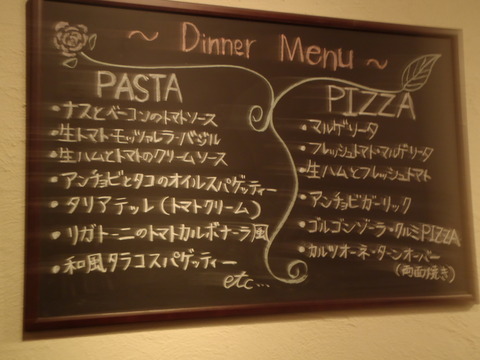 ~ Dinner Menu ~
PASTA
・ナスとベーコンのトマトソース
・生トマト・モッツァレラ・バジル
・生ハムとトマトのクリームソース
・アンチョビとタコのオイルスパゲッティー
・タリアテッレ(トマトクリーム)
・リガトーニのトマトカルボナーラ風
・和風タラコスパゲッティー
etc...
PIZZA
・マルゲリータ
・フレッシュトマト・マルゲリータ
・生ハムとフレッシュトマト
・アンチョビガーリック
・ゴルゴンゾーラ・クルミPIZZA
・カルツオーネ・ターンオーバー
(両面焼き)